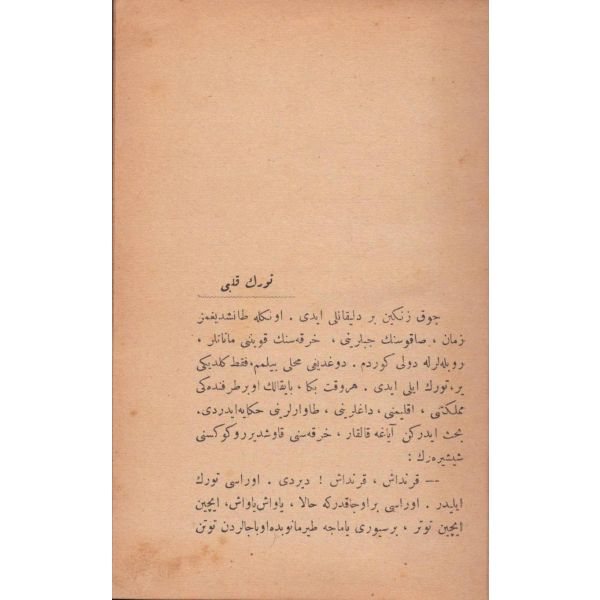 تورك قلبی
چوق زنكین بر دلیقانلی ایدی . اونكله طانشدیغمز
زمان ، صاقوسنك جبلرینی ، خرقه‌سنك قویننی ماناتلر ،
روبله‌لرله دولی كوردم . دوغدیغی محلی بیلمم، فقط كلدیكی
یر، تورك ایلی ایدی . هروقت بكا ، بایقالك اوبرطرفنده‌كی
مملكتنی ، اقلیمنی ، داغلرینی ، طاوارلرینی حكایه‌ایدردی.
بحث ایدركن آیاغه قالقار ، خرقه‌سنی قاوشدیرر وكوكسنی
شیشیره‌رك :
— قرنداش ، قرنداش ! دیردی . اوراسی تورك
ایلیدر . اوراسی براوجاقدركه حالا ، یاواش یاواش، ایچین
ایچین توتر ، برسیوری یاماجه طیرمانوبده‌اوباجالردن توتن